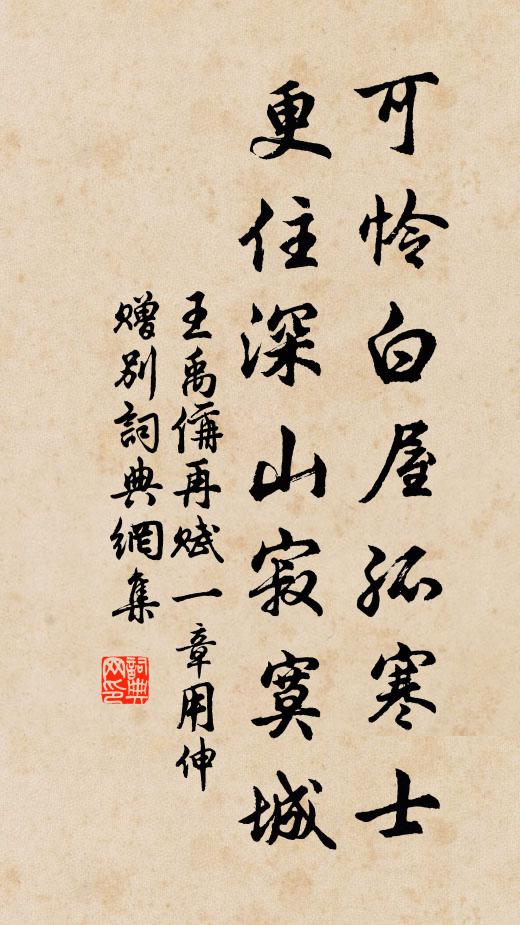 可怜白屋孤寒士
更住深山寂寞城
王禹偁再赋一章用伸
赠别詞典網集
詞典网印